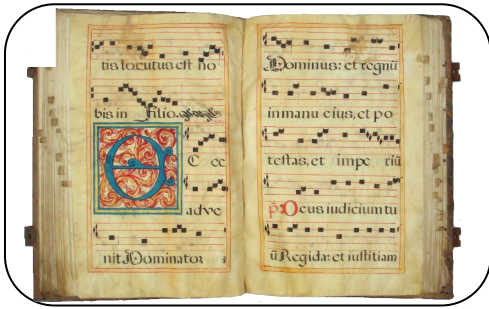 tis locutus est no
bis in filio.
E C ce
adve
nit Dominator
Dominus: et regnū
in manu eius, et po
testas, et impe riū
ps. Deus iudicium tu
ū Regi da: et iustitiam